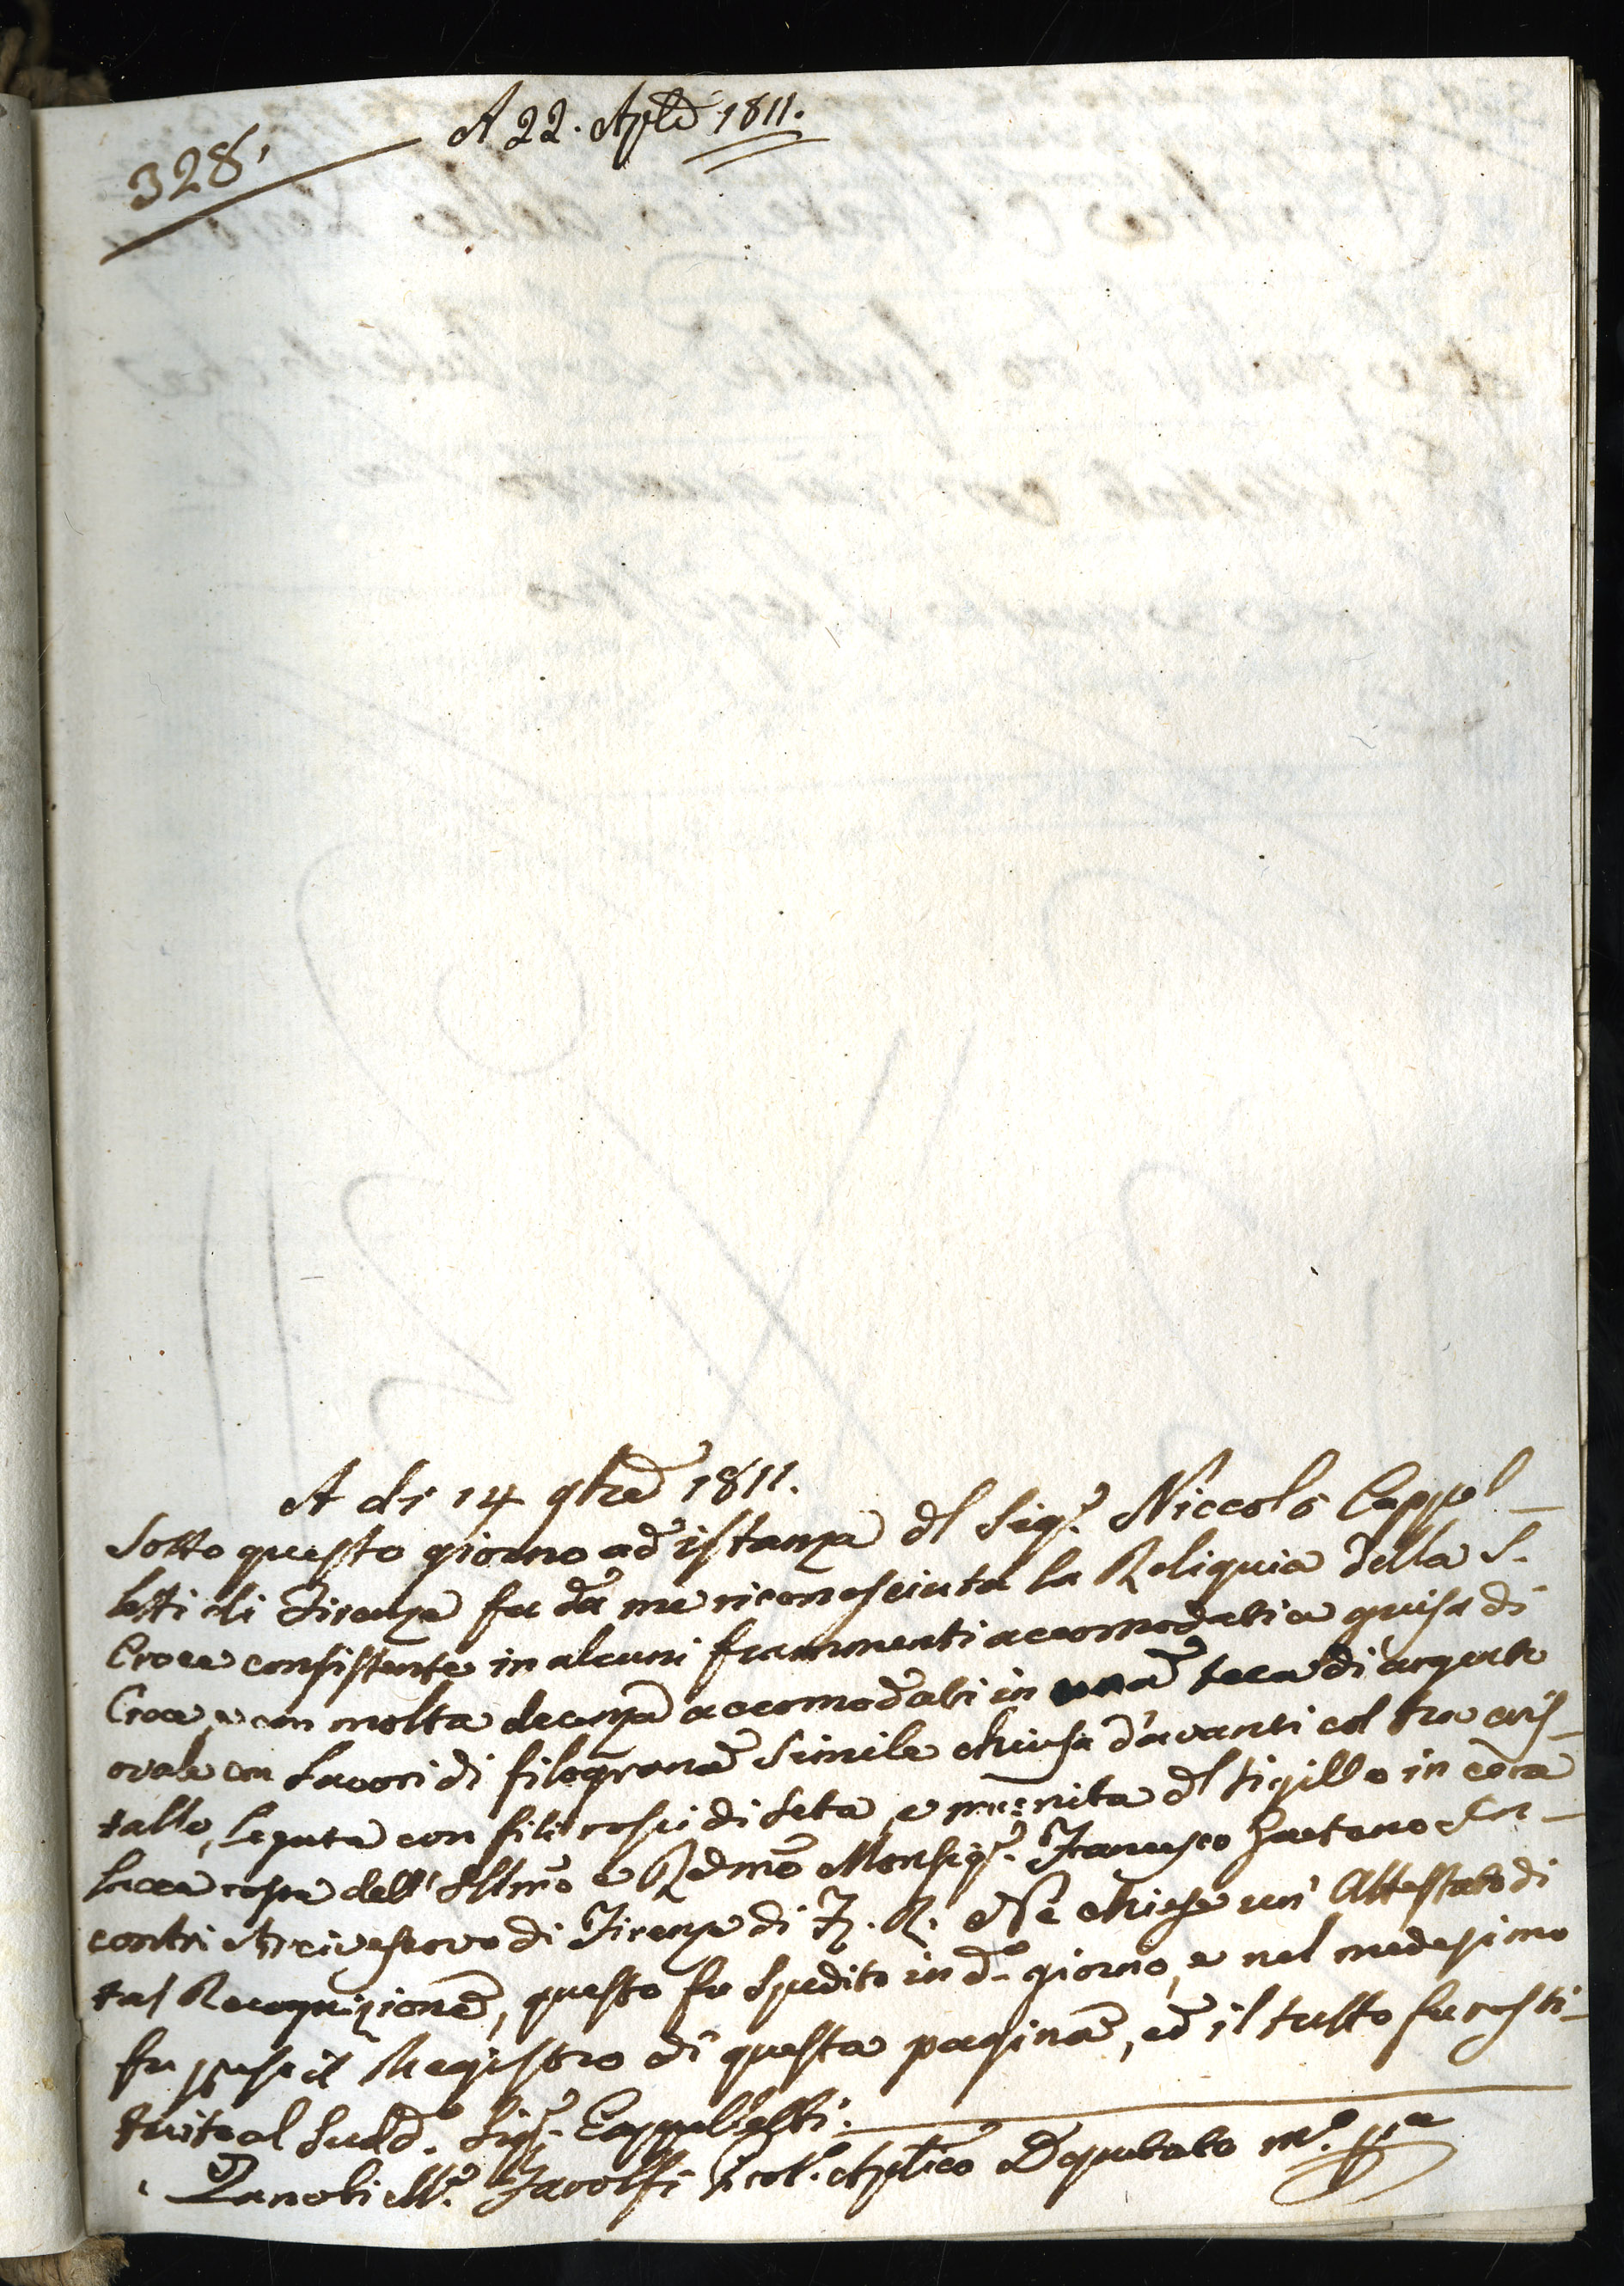 328.
A 22. Aple 1811.
A dì 14 9bre 1811.
Sotto questo giorno ad istanza dl Sigr. Niccolò Cappel-
letti di Firenze fu da me riconosciuta la Reliquia della S.
Croce consistente in alcuni frammenti accomodati a guisa di
Croce, e con molta decenza accomodati in una teca di argento
ovale con lavori di filograna simile chiusa d'avanti col suo cris-
tallo, legata con fili rossi di seta, e munita dl sigillo in cera
lacca rossa dell' Illmo e Rdmo Monsigr. Francesco Gaetano In-
contri Arcivescovo di Firenze di F. R. e Ne chiese un' Attestato di
tal Recognizione, questo fu spedito in do. giorno, e nel medesimo
fu preso il Registro di questa pagina, ed il tutto fu resti-
tuito al Sudd. Sigr. Cappelletti.
Zanobi Ma. Apico Deputato mo. ppa